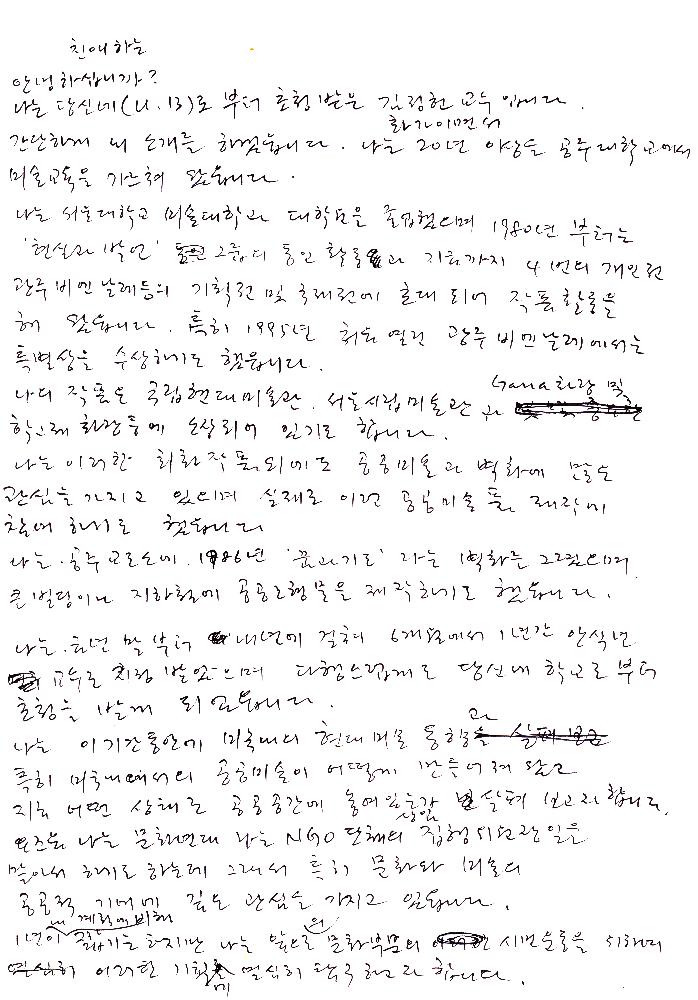 친애하는
안녕하십니까?
나는 당신네(U.B)로 부터 초청 받은 김정헌 교수 입니다.
간단하게 내 소개를 하겠습니다. 나는 화가이면서 20년 이상을 공주대학교에서
미술교육을 가르쳐 왔습니다.
나는 서울대학교 미술대학과 대학원을 졸업했으며 1980년 부터는
'현실과 발언' 그룹의 동인 활동과 지금까지 4번의 개인전
광주비엔날레등의 기획전 및 국제전에 초대 되어 작품활동을
해 왔습니다. 특히 1995년 최초 열린 광주 비엔날레에서는
특별상을 수상하기도 했습니다.
나의 작품은 국립현대미술관, 서울시립미술관 Gana화랑 및
학고재 화랑등에 소장되어 있기도 합니다.
나는 이러한 회화작품외에도 공공미술과 벽화에 많은
관심을 가지고 있으며 실제로 이런 공공미술품 제작에
참여 하기도 했습니다
나는 공주교도소에 1986년 '꿈과기도' 라는 벽화를 그렸으며
큰 빌딩이나 지하철에 공공조형물을 제작하기도 했습니다.
나는 금년 말 부터 내년에 걸쳐 6개월에서 1년간 안식년
교수로 지정 받았으며 다행스럽게도 당신네 학교로 부터
초청을 받게 되었습니다.
나는 이 기간동안에 미국내의 현대미술 동향과
특히 미국내에서의 공공미술이 어떻게 만들어져 왔고
지금 어떤 상태로 공공공간에 놓여있는가 살펴 보고자 합니다.
요즈음 나는 문화연대 라는 NGO 단체의 상임집행위원장 일을
맡아서 하기도 하는데 그래서 특히 문화와 미술의
공공적 기여에 깊은 관심을 가지고 있습니다.
1년이 계획에 비해 짧기는 하지만 나는 앞으로의 문화부문의 시민운동을 위하여
이러한 기획을 열심히 탐구 하려고 합니다.